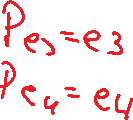 Pe₃=e3
Pe₄=e4